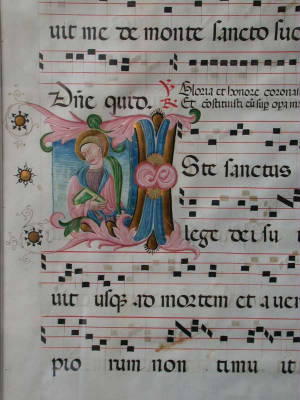 uit me de monte sancto suo
Dñe quid. ℣ Gloria et honore coronas
℟ Et cõstituisti eũ sup opa ma
Iste sanctus
lege dei su
uit usq̃ ad mortem et a uer
pio rum non timu it